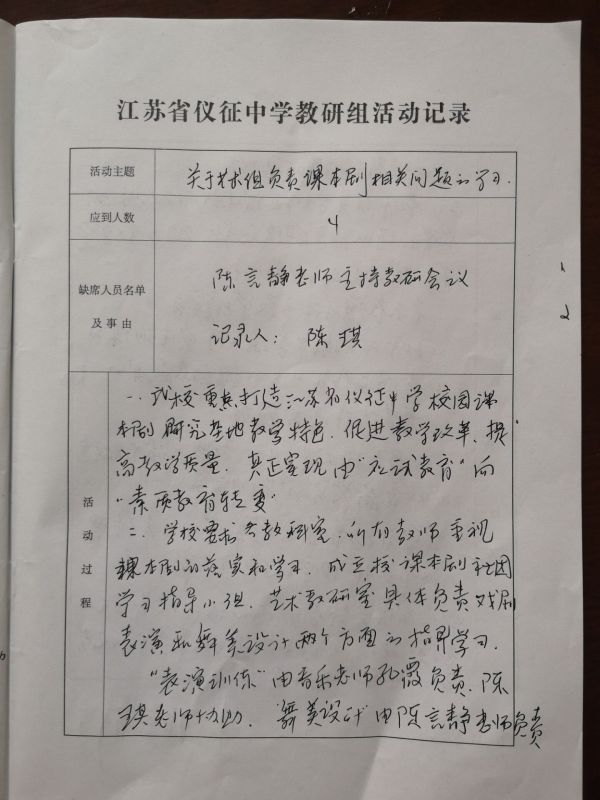 江苏省仪征中学教研组活动记录
活动主题
关于艺术组负责课本剧相关问题的学习.
应到人数
4
缺席人员名单
及事由
陈言静老师主持教研会议
记录人: 陈琪
活动过程
一. 我校重点打造江苏省仪征中学校园课
本剧研究基地教学特色. 促进教学改革、提
高教学质量. 真正实现由“应试教育”向
“素质教育转变”
二. 学校要求各教科室. 所有教师重视
课本剧的落实和学习. 成立校课本剧社团
学习指导小组. 艺术教研室具体负责戏剧
表演和舞美设计两个方面的指导学习.
“表演训练”由音乐老师孔霞负责. 陈
琪老师协助. 舞美设计由陈言静老师负责